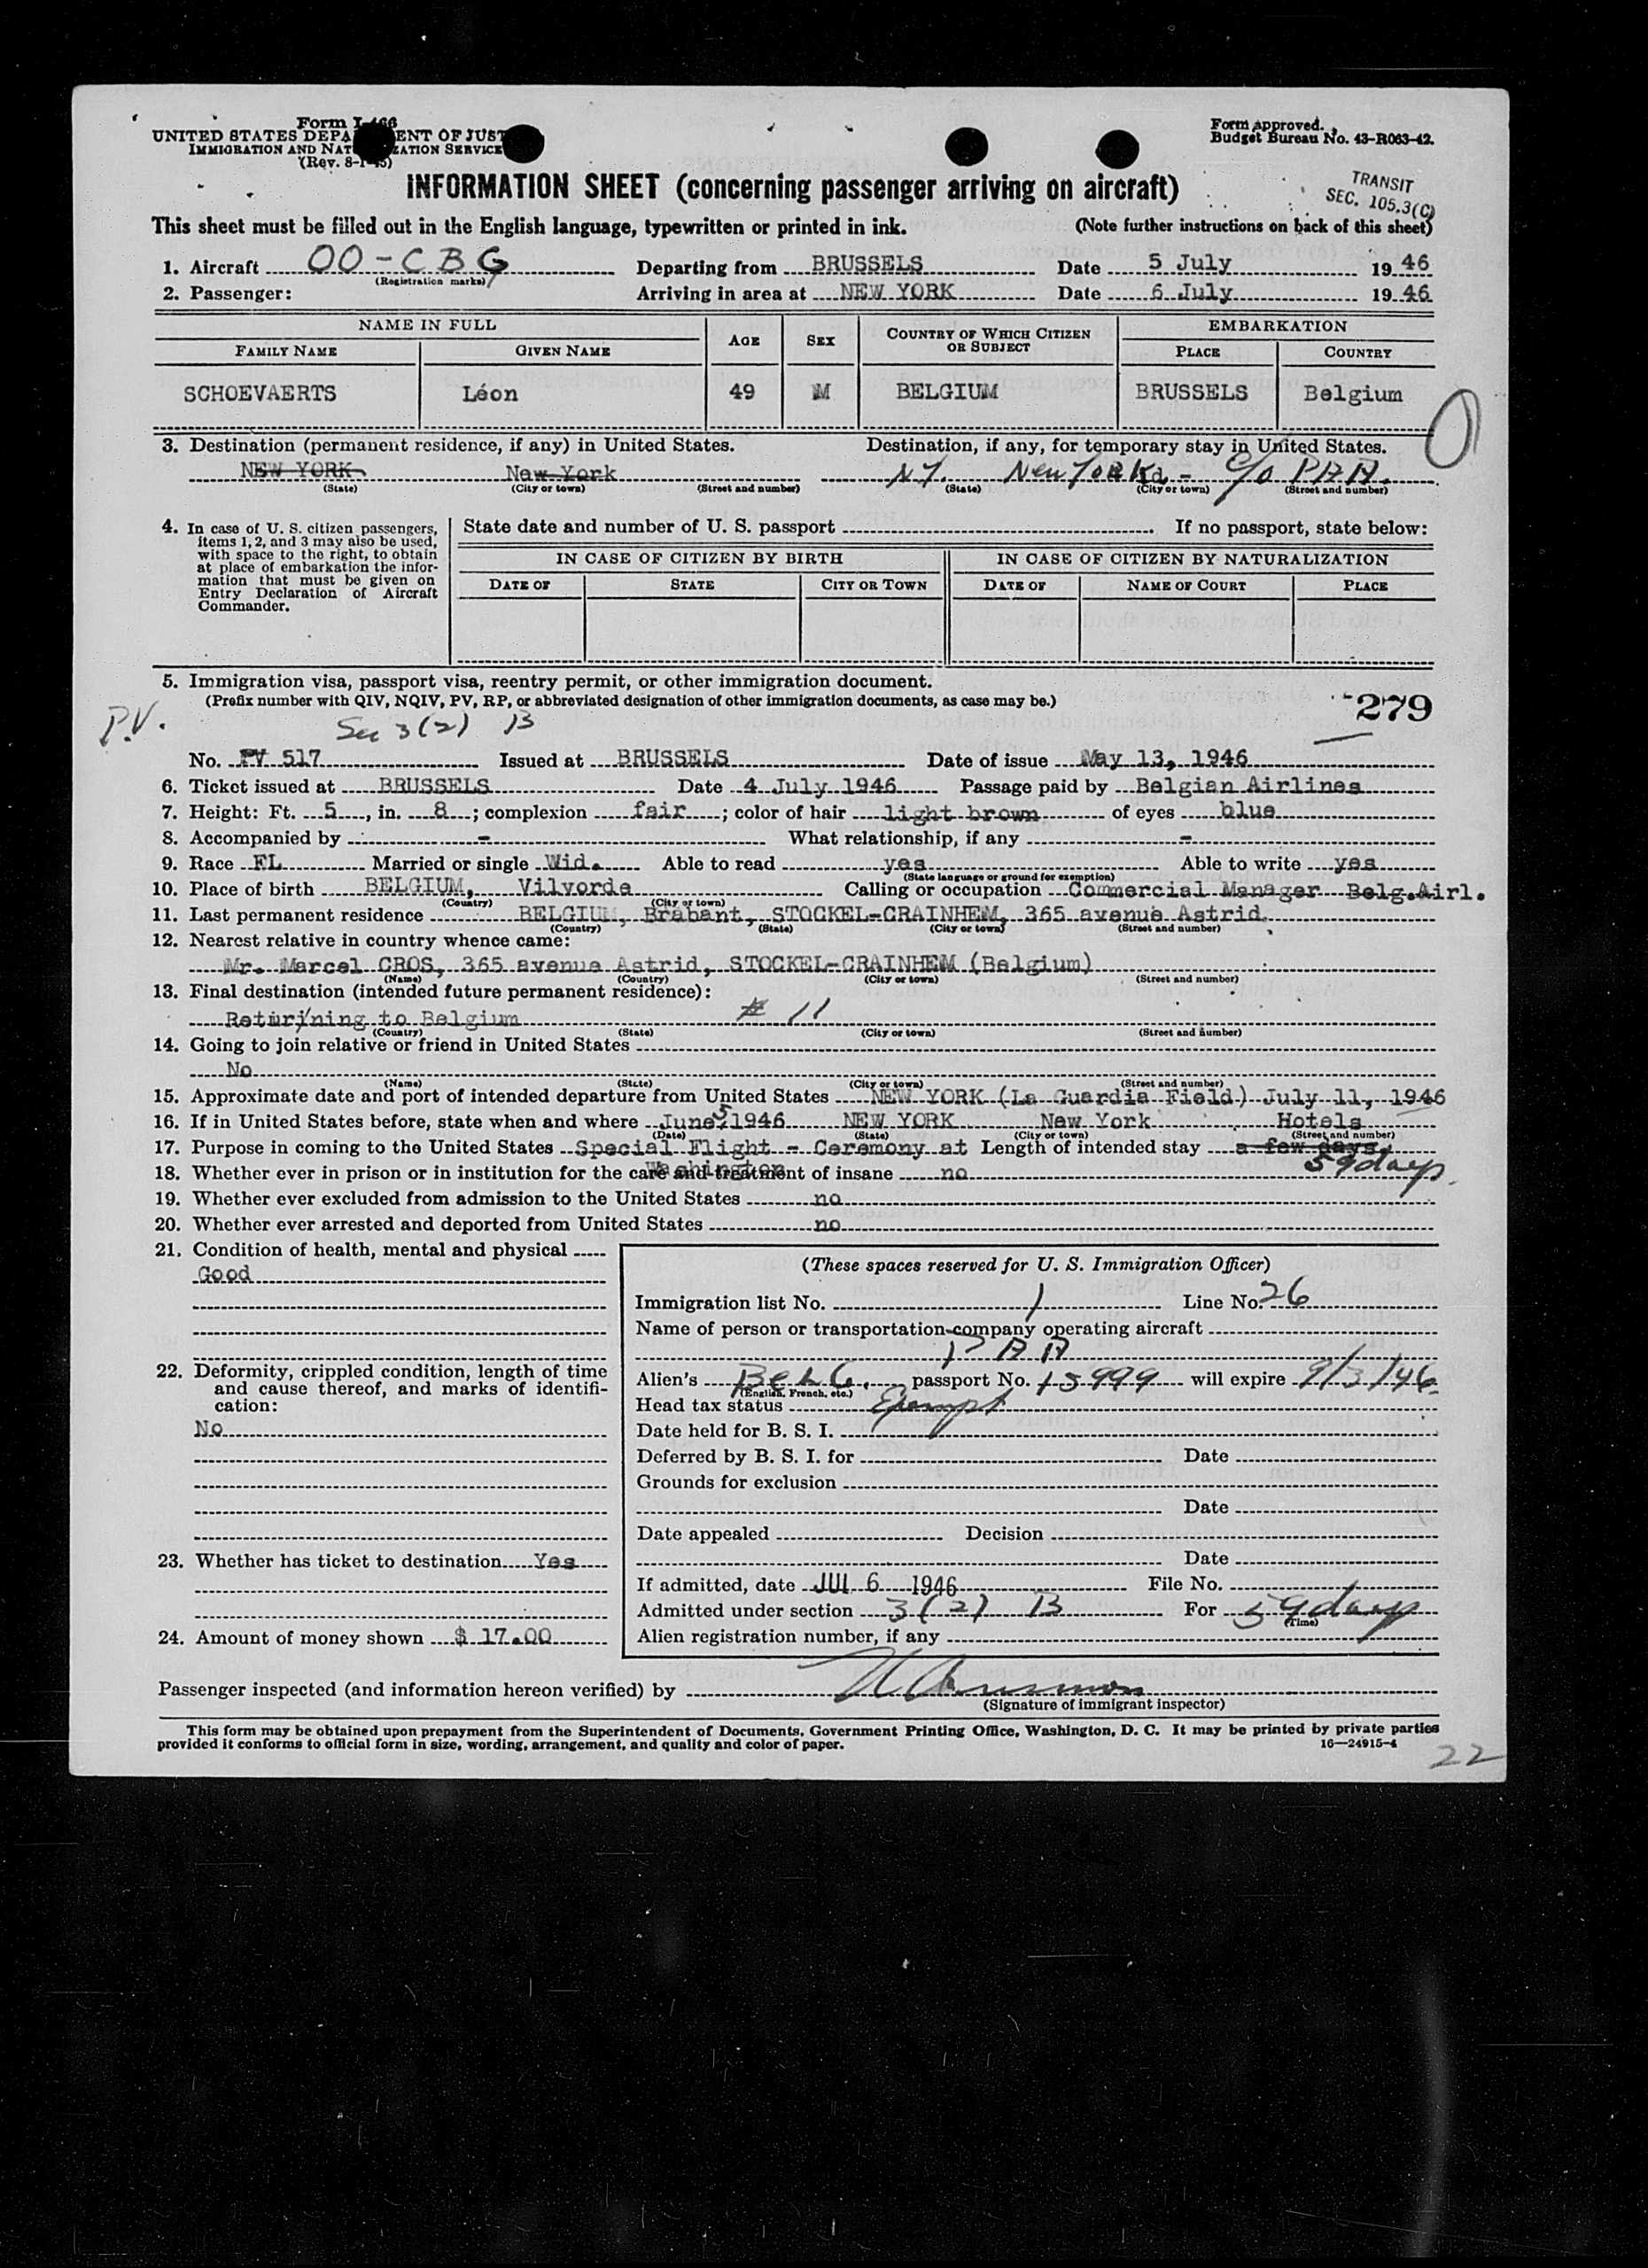 Form I-466
UNITED STATES DEPA ENT OF JUST
IMMIGRATION AND NAT ZATION SERVICE
(Rev. 8-1-45)
Form approved.
Budget Bureau No. 43-R063-42.
INFORMATION SHEET (concerning passenger arriving on aircraft)
TRANSIT
SEC. 105.3(C)
This sheet must be filled out in the English language, typewritten or printed in ink. (Note further instructions on back of this sheet)
1. Aircraft OO-CBG Departing from BRUSSELS Date 5 July 1946
(Registration marks)
2. Passenger: Arriving in area at NEW YORK Date 6 July 1946
NAME IN FULL AGE SEX COUNTRY OF WHICH CITIZEN OR SUBJECT EMBARKATION
FAMILY NAME GIVEN NAME PLACE COUNTRY
SCHOEVAERTS Léon 49 M BELGIUM BRUSSELS Belgium
3. Destination (permanent residence, if any) in United States. Destination, if any, for temporary stay in United States.
NEW YORK New York NY. New York - c/o PAA.
(State) (City or town) (Street and number) (State) (City or town) (Street and number)
4. In case of U. S. citizen passengers, items 1, 2, and 3 may also be used, with space to the right, to obtain at place of embarkation the information that must be given on Entry Declaration of Aircraft Commander.
State date and number of U. S. passport If no passport, state below:
IN CASE OF CITIZEN BY BIRTH IN CASE OF CITIZEN BY NATURALIZATION
DATE OF STATE CITY OR TOWN DATE OF NAME OF COURT PLACE
5. Immigration visa, passport visa, reentry permit, or other immigration document.
(Prefix number with QIV, NQIV, PV, RP, or abbreviated designation of other immigration documents, as case may be.)
279
P.V. Sec 3(2) B
No. PV 517 Issued at BRUSSELS Date of issue May 13, 1946
6. Ticket issued at BRUSSELS Date 4 July 1946 Passage paid by Belgian Airlines
7. Height: Ft. 5, in. 8; complexion fair; color of hair light brown of eyes blue
8. Accompanied by - What relationship, if any -
9. Race FL Married or single Wid. Able to read yes Able to write yes
(State language or ground for exemption)
10. Place of birth BELGIUM, Vilvorde Calling or occupation Commercial Manager Belg.Airl.
(Country) (City or town)
11. Last permanent residence BELGIUM, Brabant, STOCKEL-CRAINHEM, 365 avenue Astrid
(Country) (State) (City or town) (Street and number)
12. Nearest relative in country whence came:
Mr. Marcel CROS, 365 avenue Astrid, STOCKEL-CRAINHEM (Belgium)
(Name) (Country) (City or town) (Street and number)
13. Final destination (intended future permanent residence):
Returning to Belgium # 11
(Country) (State) (City or town) (Street and number)
14. Going to join relative or friend in United States
No
(Name) (State) (City or town) (Street and number)
15. Approximate date and port of intended departure from United States NEW YORK (La Guardia Field) July 11, 1946
16. If in United States before, state when and where June 5, 1946 NEW YORK New York Hotels
(Date) (State) (City or town) (Street and number)
17. Purpose in coming to the United States Special Flight - Ceremony at Length of intended stay a few days
Washington 59 days
18. Whether ever in prison or in institution for the care and treatment of insane no
19. Whether ever excluded from admission to the United States no
20. Whether ever arrested and deported from United States no
21. Condition of health, mental and physical
Good
22. Deformity, crippled condition, length of time and cause thereof, and marks of identification:
No
23. Whether has ticket to destination Yes
24. Amount of money shown $ 17.00
(These spaces reserved for U. S. Immigration Officer)
Immigration list No. 1 Line No. 26
Name of person or transportation company operating aircraft
PAA
Alien's Belg. passport No. 15999 will expire 9/3/46
(English, French, etc.)
Head tax status Exempt
Date held for B. S. I.
Deferred by B. S. I. for Date
Grounds for exclusion
Date
Date appealed Decision
Date
If admitted, date JUL 6 1946 File No.
Admitted under section 3(2) B For 59 days
(Time)
Alien registration number, if any
Passenger inspected (and information hereon verified) by
(Signature of immigrant inspector)
This form may be obtained upon prepayment from the Superintendent of Documents, Government Printing Office, Washington, D. C. It may be printed by private parties
provided it conforms to official form in size, wording, arrangement, and quality and color of paper. 16—24915-4
22